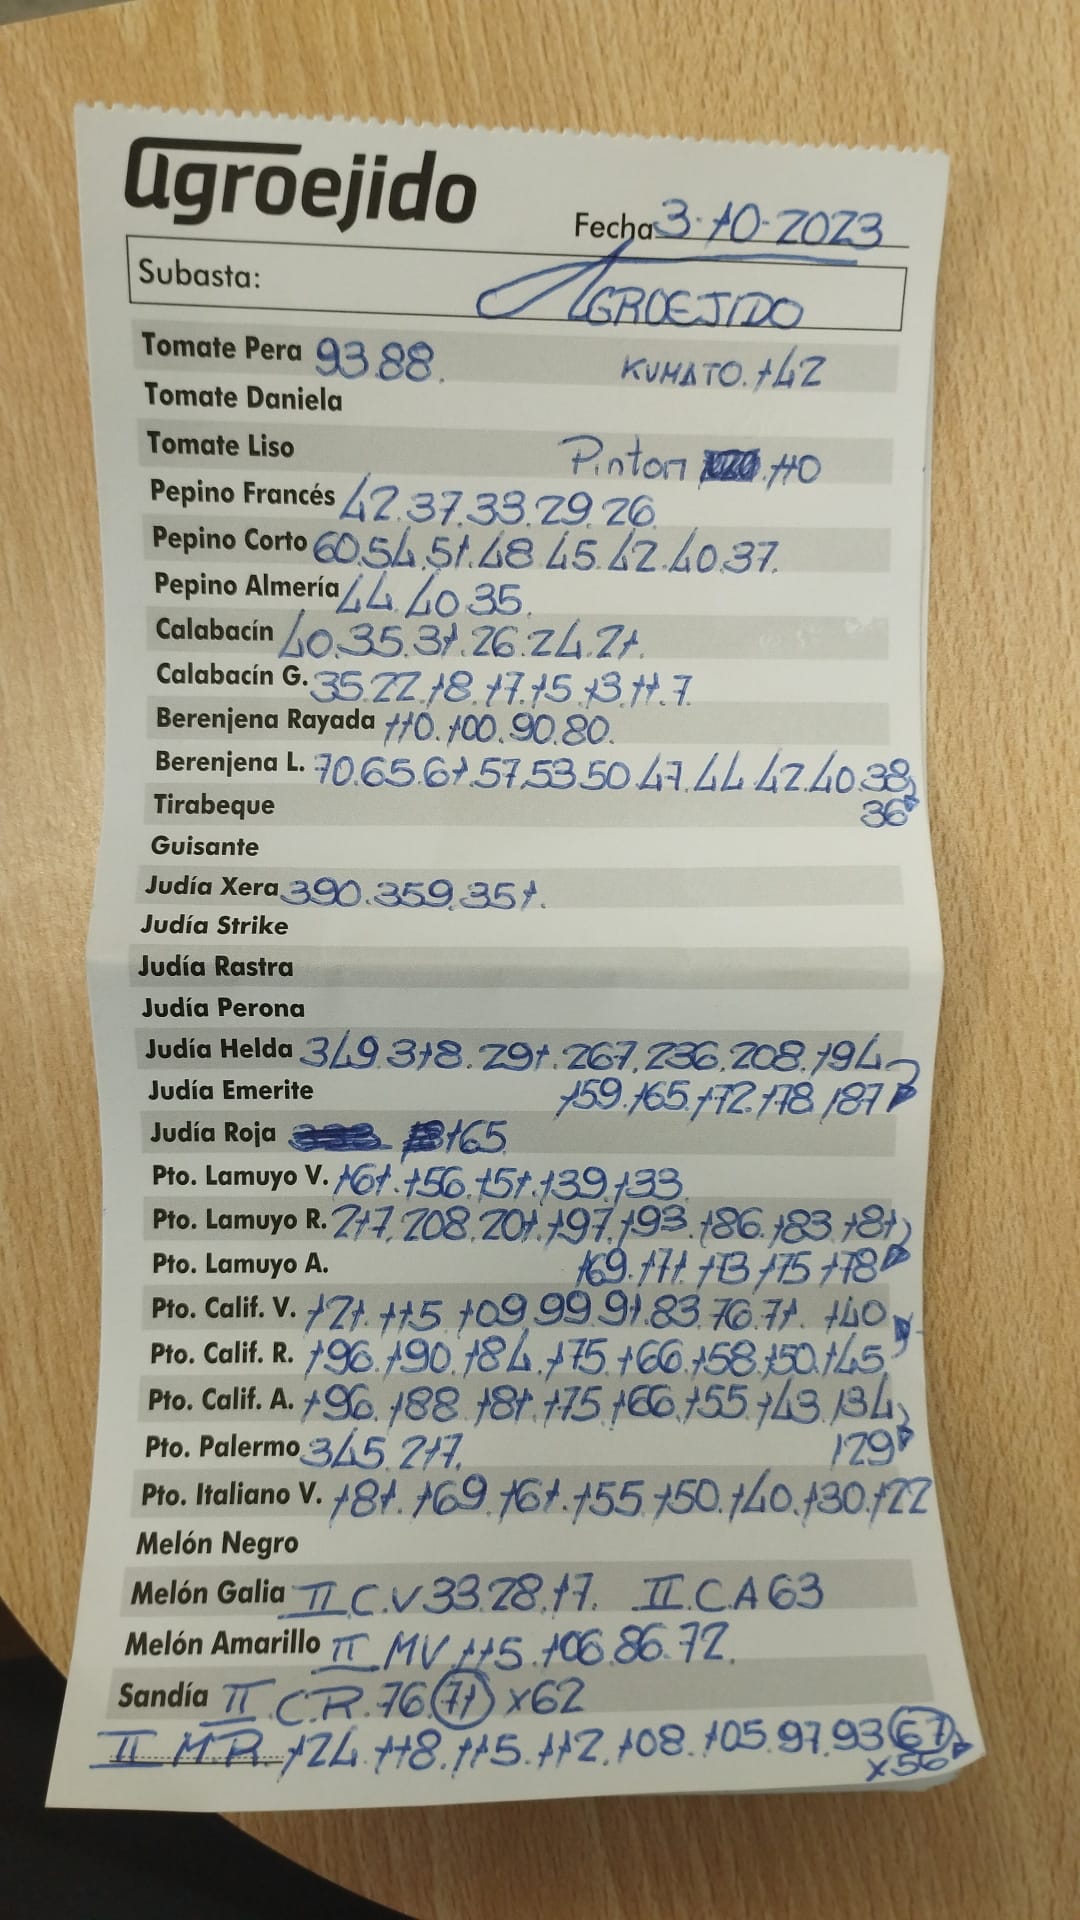 agroejido
Fecha 3-10-2023
Subasta: AGROEJIDO
Tomate Pera 93.88. KUMATO. 142
Tomate Daniela
Tomate Liso Pinton 110
Pepino Francés 42.37.33.29.26
Pepino Corto 60.54.51.48.45.42.40.37.
Pepino Almería 44.40.35.
Calabacín 40.35.31.26.24.21.
Calabacín G. 35.22.18.17.15.13.11.7.
Berenjena Rayada 110.100.90.80.
Berenjena L. 70.65.61.57.53.50.47.44.42.40.38,
Tirabeque 36
Guisante
Judía Xera 390.359.351.
Judía Strike
Judía Rastra
Judía Perona
Judía Helda 349.318.291.267.236.208.194
Judía Emerite 159.165.172.178.187
Judía Roja 165
Pto. Lamuyo V. 161.156.151.139.133
Pto. Lamuyo R. 217.208.201.197.193.186.183.181
Pto. Lamuyo A. 169.171.173.175.178
Pto. Calif. V. 121.115.109.99.91.83.76.71. 140
Pto. Calif. R. 196.190.184.175.166.158.150.145
Pto. Calif. A. 196.188.181.175.166.155.143.134
Pto. Palermo 345.217. 129
Pto. Italiano V. 181.169.161.155.150.140.130.122
Melón Negro
Melón Galia II C.V 33.28.17. II.C.A 63
Melón Amarillo II MV 115.106.86.72.
Sandía II C.R.76.71 x62
II M.R. 124.118.115.112.108.105.97.93 67
x56